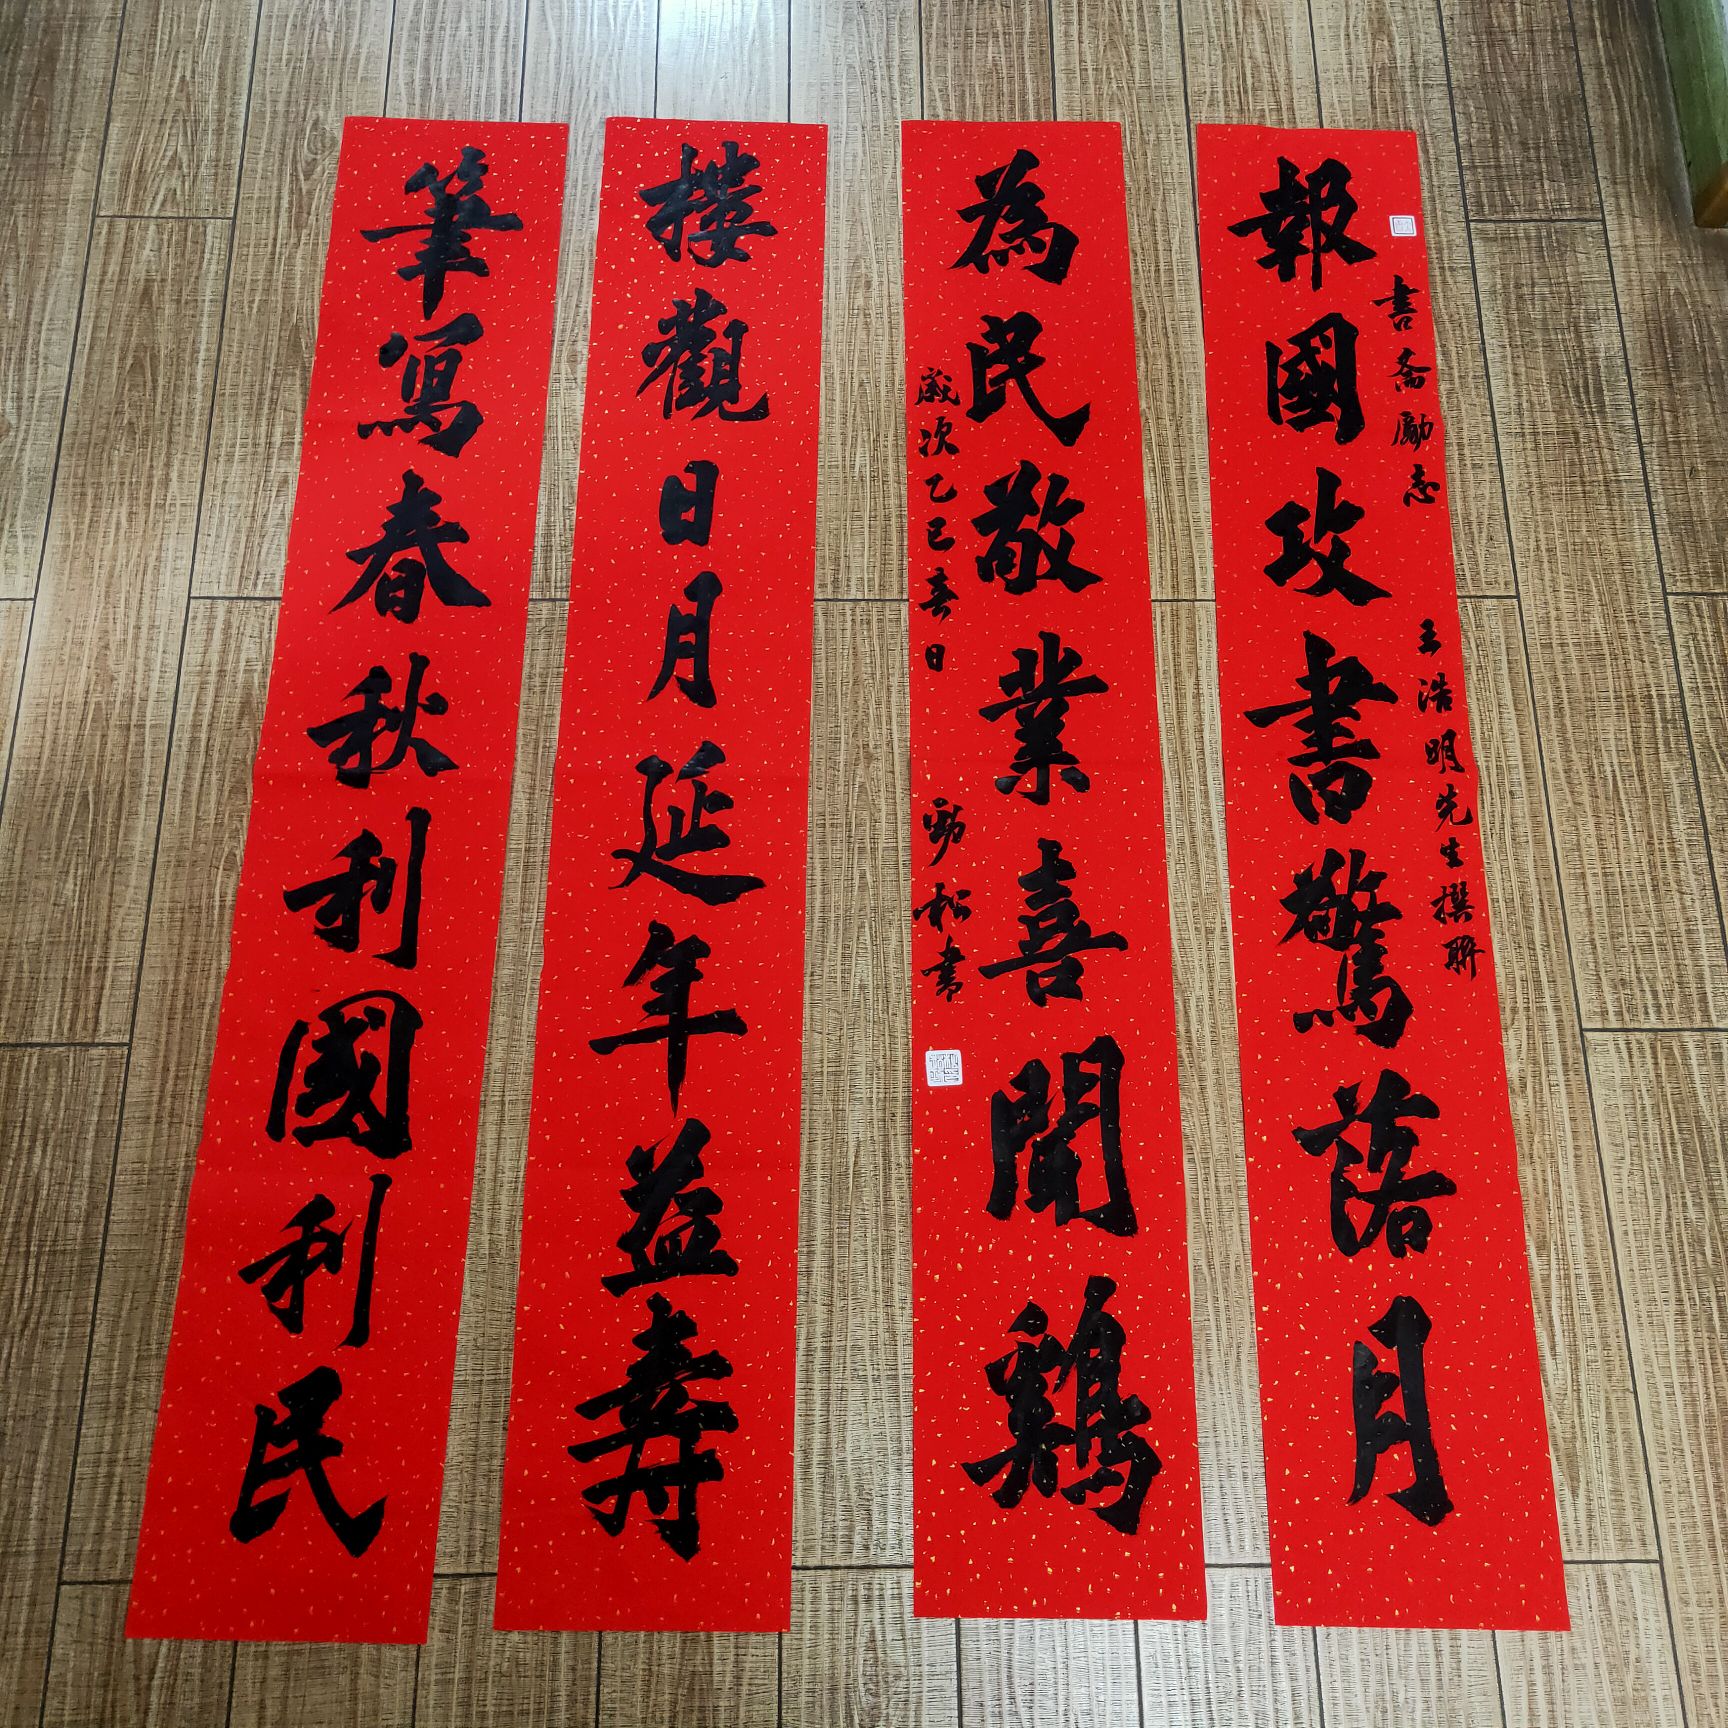 書斋勵志 王浩明先生撰聯
報國攻書驚落月
為民敬業喜聞鷄
歲次乙巳春日 勁松書
樓觀日月延年益壽
筆寫春秋利國利民